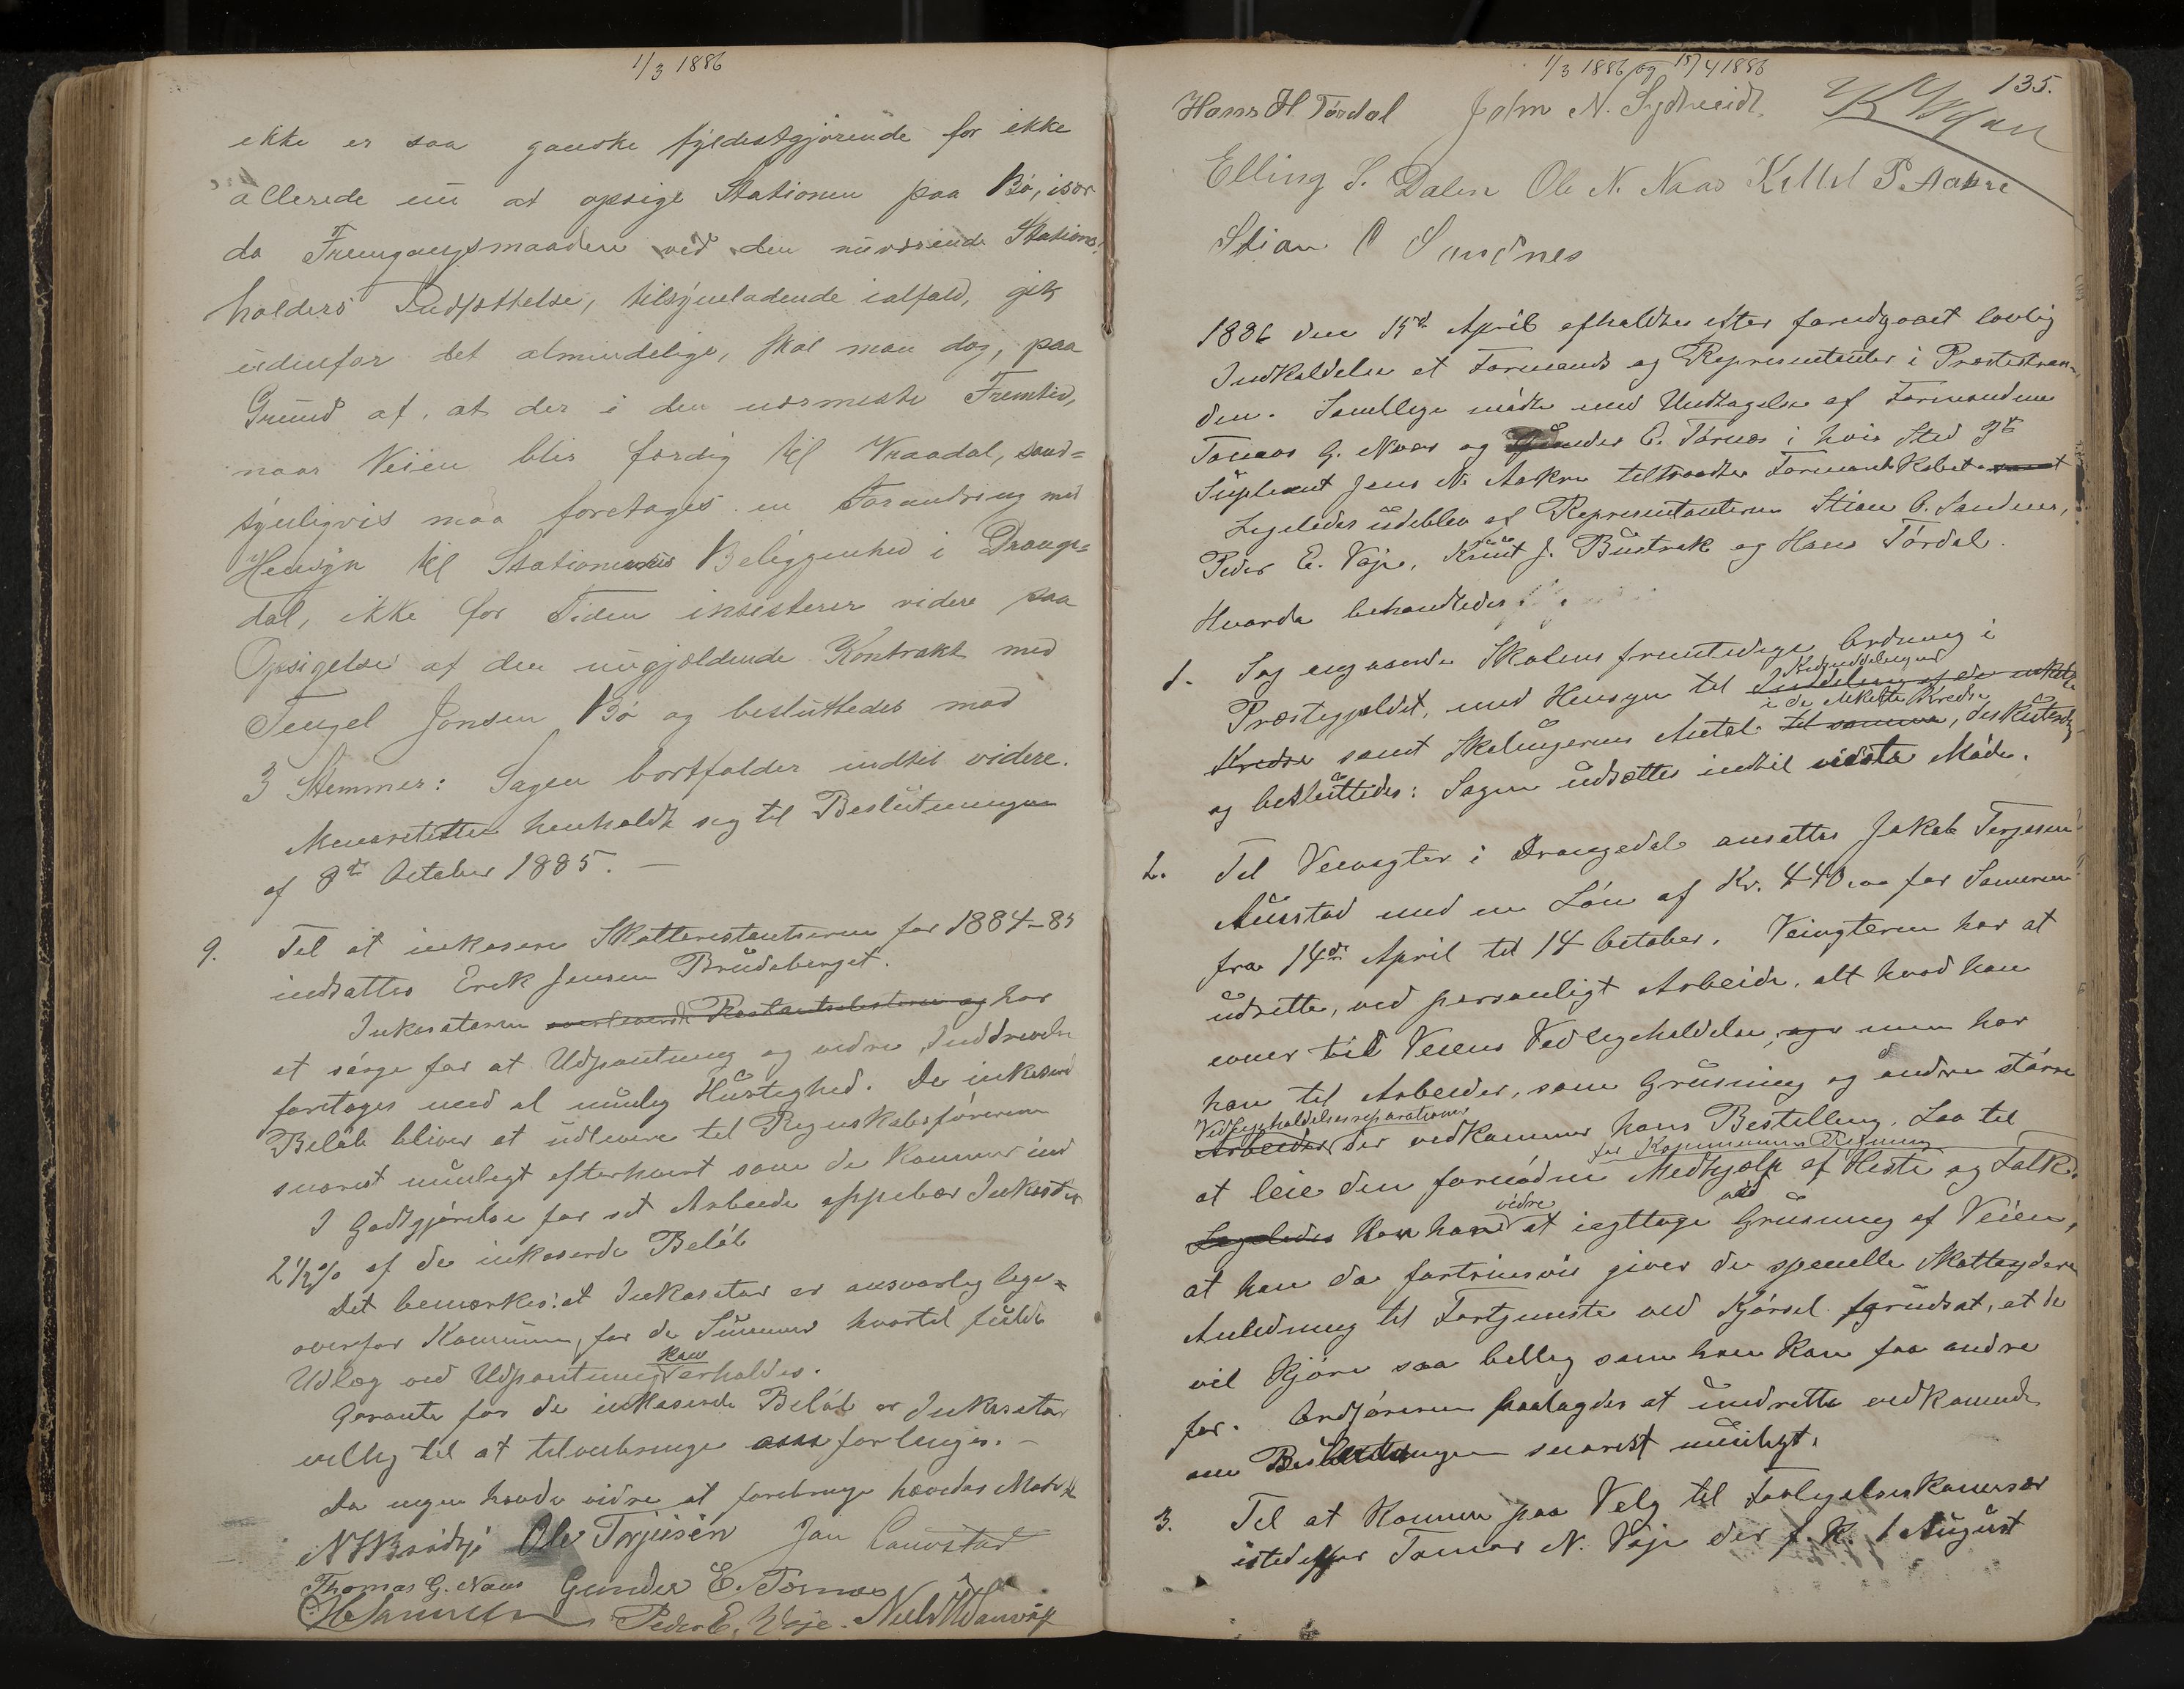 1/3 1886
ekke er saa ganske fyldestgjørende for ikke
allerede nu at opsige Stationen paa Bø, især
da Fremgangsmaaden ved den nuværende Stations-
holders Indsættelse, tilsyneladende ialfald, gik
udenfor det almindelige, skal man dog, paa
Grund af, at der i den nærmeste Fremtid,
naar Veien blir færdig til Vraadal, sand=
synligvis maa foretages en Forandring med
Hensyn til Stationens Beliggenhed i Drange=
dal, ikke for Tiden insisterer videre paa
Opsigelse af den nugjældende Kontrakt med
Tengel Jonsen Bø og besluttedes mod
3 Stemmer: Sagen bortfalder indtil videre.
Menoretetten henholdt seg til Beslutningen
af 8de October 1885. —
9. Til at inkasere Skatterestantserne for 1884-85
indsattes Erek Jensen Brødsberget.
Inkasatoren overleverede Restantselisterne og har
at sørge for at Udpantning og vedre Inddrevelse
foretages med al mulig Hurtighed. De inkaserede
Beløb bliver at udlevere til Regnskabsføreren
snarest muligt efterhvert som de kommer ind
I Godtgjørelse for sit Arbeide oppebær Inkasator
2 1/2 % af de inkaserede Beløb
Det bemærkes: at Inkasator er ansvarlig lige=
overfor Kommunen, for de Summer hvortil fulde
Udlæg ved Udpantning kan erholdes.
Garante for de inkaserede Beløb er Inkasator
vellig til at tilveiebringe om forlanges. —
Da ingen havde vidre at forebringe hævedes Mødet
Ole Terjesen Jan Gaustad
Thomas G. Naas Gunder E. Tørnes
Peder E. Voje.
1/3 1886 og 15/4 1886
135.
Hans H Tørdal John N. Sydhveidt
Elling S. Dalen Ole N. Naas Kittel P Aakre
Stian O Sandnes
1886 den 15de April afholdtes efter foregaaet lovlig
Indkaldelse et Formands og Representanter i Præstestran-
den. Samtlige mødte med Undtagelse af Formændene
Tomas G. Naas og Gunder E. Tørnes i hvis Sted 3die
Supleant Jens N. Aakre tiltraadte Formandskabet samt
Legeledes udeblev af Representanterne Stian O. Sandnes,
Peder E. Voje, Knut J. Bustrak og Hans Tørdal.
Hvorda behandledes:
1. Sag angaaende Skolens fremtidige Ordning i
Præstegjældet, med Hensyn til Inddeling af de enkelte Kredsinddelinger
Kredse samt Skoleugernes Antal til samme i de enkelte Kredse, deskuteredes
og besluttedes: Sagen udsættes indtil vidste Møde.
2. Til Veivogter i Drangedal ansættes Jakob Terjesen
Austad med en Løn af Kr. 440.00 for Sommeren
fra 14de April til 14 October. Veivogteren har at
udrette, ved personligt Arbeide, alt hvad han
evner til Veiens Vedlegeholdelse, og men har
han til Arbeider, som Grusning og andre større
Arbeider Vedlegeholdelsesreparationer der vedkommer hans Bestilling, Lov til
at leie den fornødne Medhjælp for Kommunens Regning af Heste og Folk.
Legeledes Han har vidre at iagttage ved Grusning af Veien,
at han da fortrinsvis giver de specielle Skatteydere
Anledning til Fortjeneste ved Kjørsel forudsat, at de
vil kjøre saa belleg som han kan faa andre
for. Ordføreren paalagdes at underrette vedkommende
om Beslutningen snarest muligt.
3. Til at komme paa Velg til Forligelseskommissær
istedetfor Tomas N. Voje der f. K. 1 August